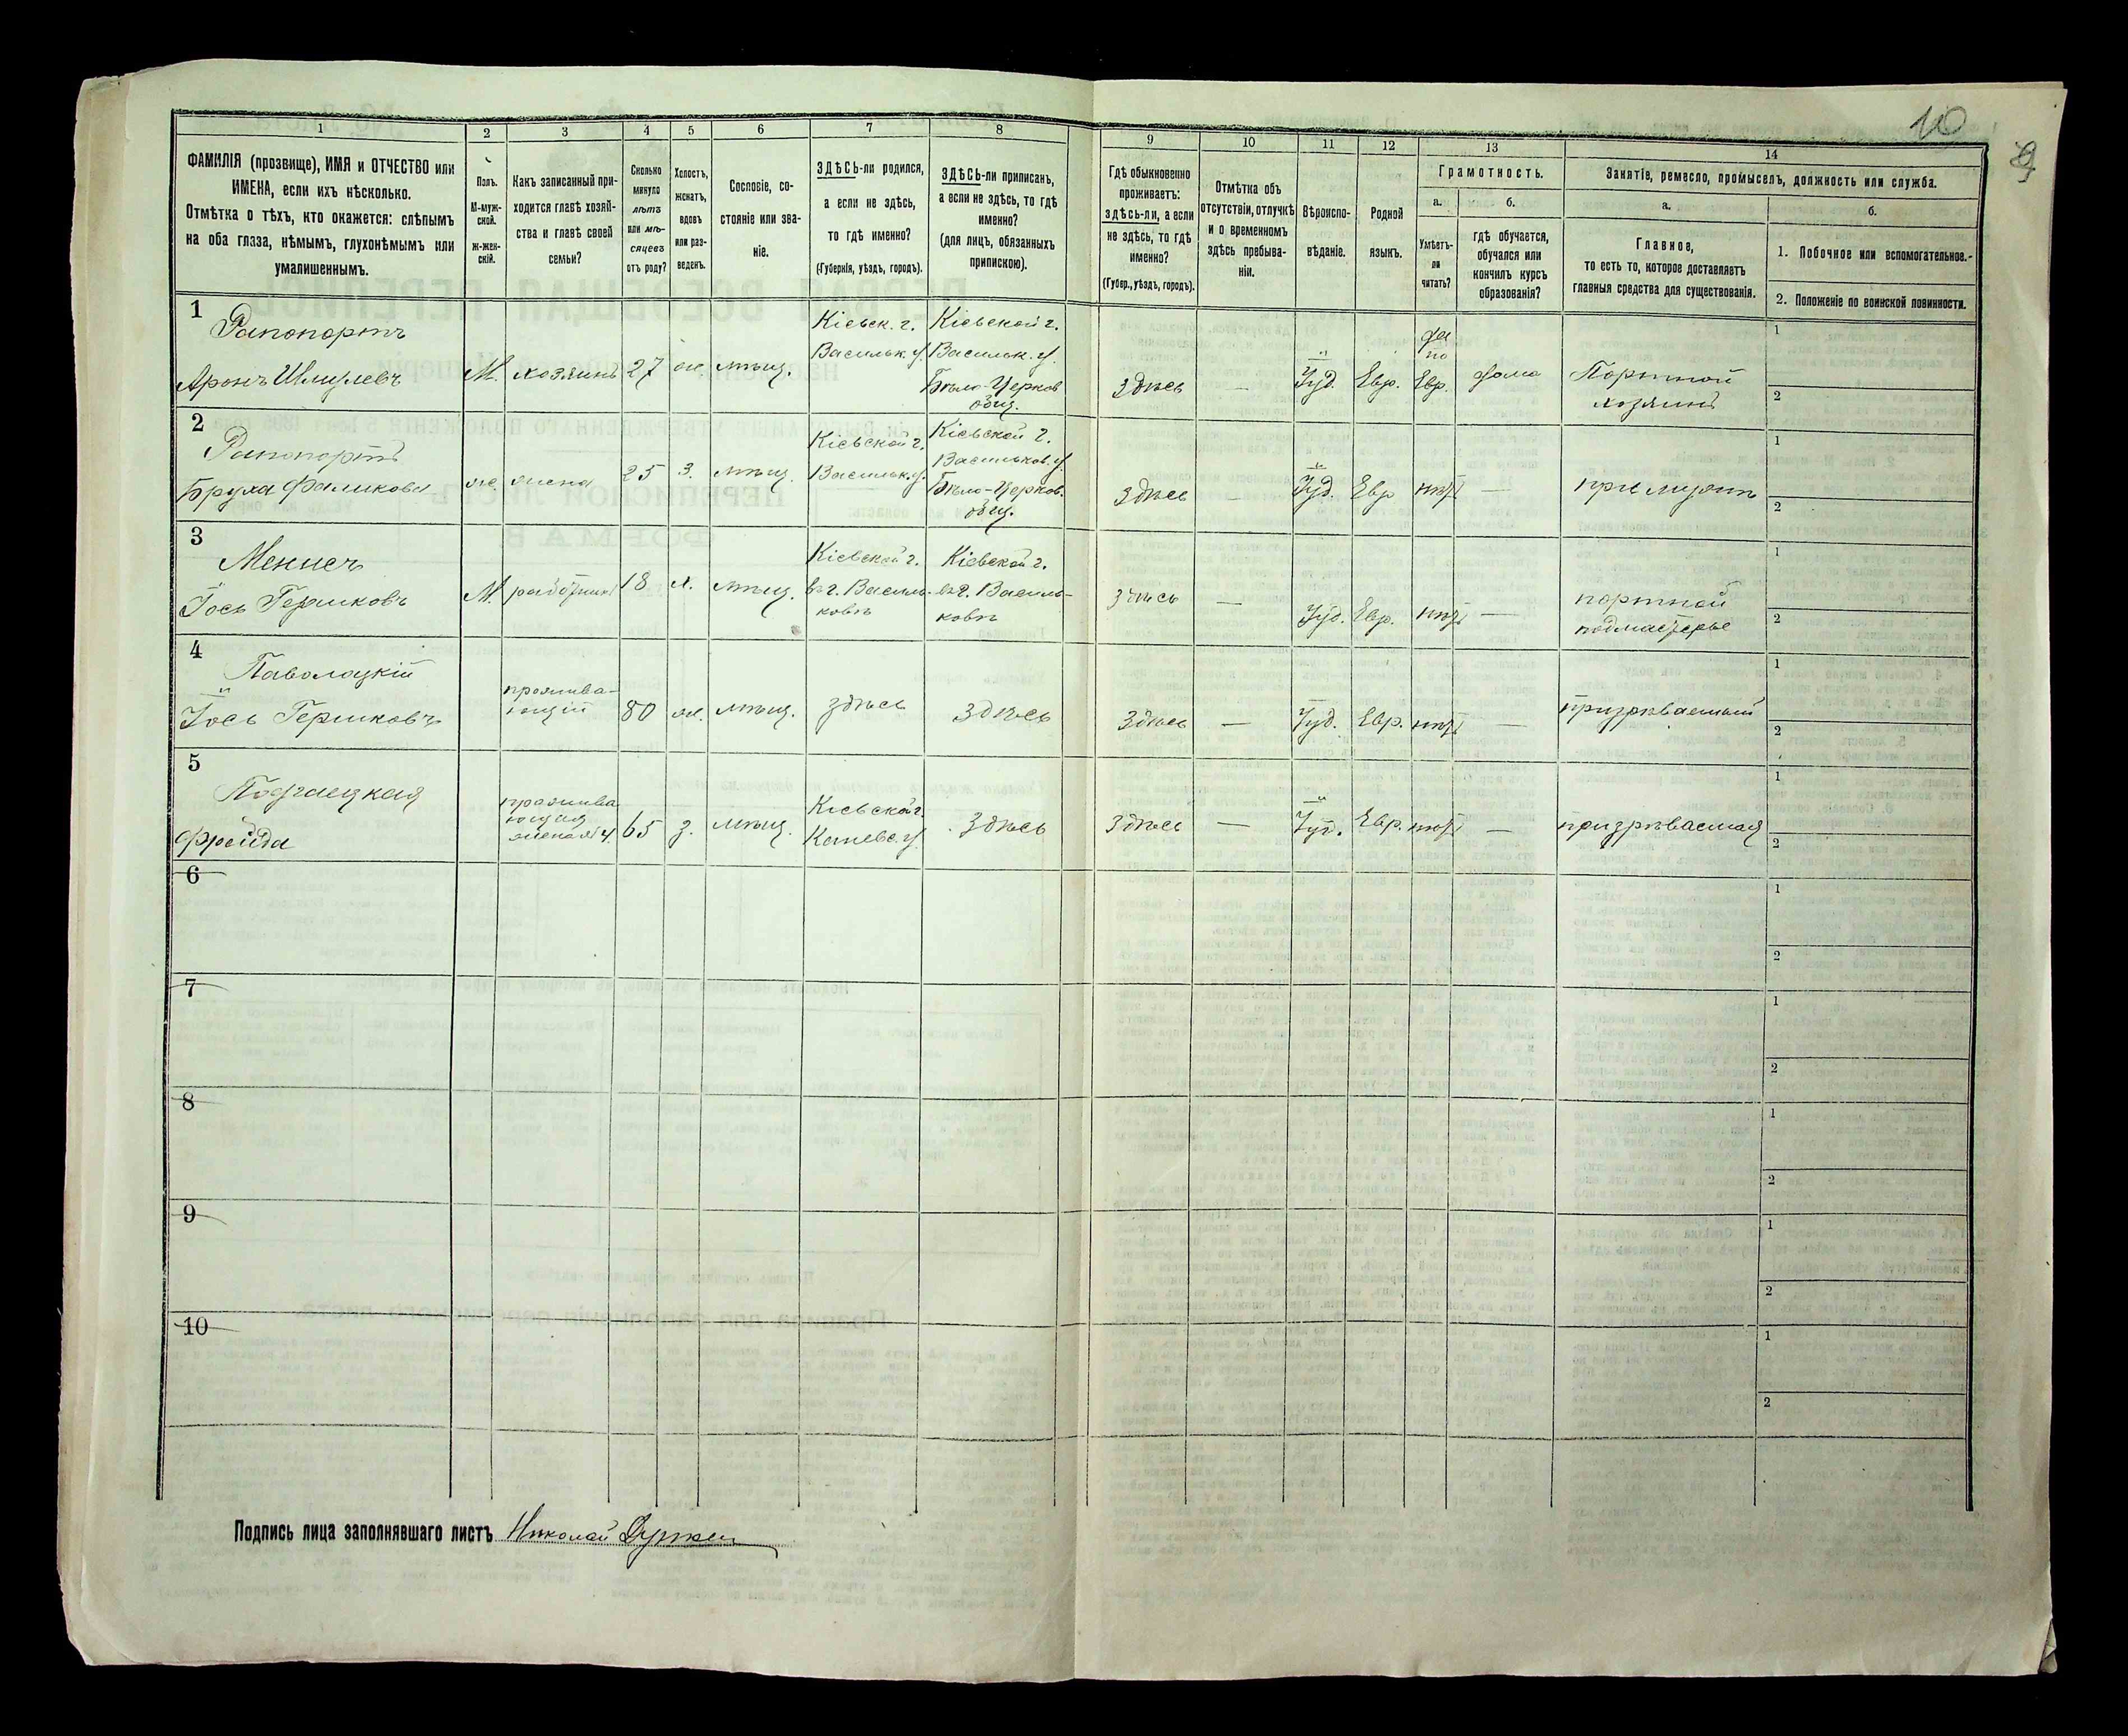 10
9
1 2 3 4 5 6 7 8 9 10 11 12 13 14
ФАМИЛІЯ (прозвище), ИМЯ и ОТЧЕСТВО или
ИМЕНА, если ихъ нѣсколько.
Отмѣтка о тѣхъ, кто окажется: слѣпымъ
на оба глаза, нѣмымъ, глухонѣмымъ или
умалишеннымъ.
Полъ.
М-муж-
ской.
ж-жен-
скій.
Какъ записанный при-
ходится главѣ хозяй-
ства и главѣ своей
семьи?
Сколько
минуло
лѣтъ
или мѣ-
сяцевъ
отъ роду?
Холостъ,
женатъ,
вдовъ
или раз-
веденъ.
Сословіе, со-
стояніе или зва-
ніе.
ЗДѢСЬ-ли родился,
а если не здѣсь,
то гдѣ именно?
(Губернія, уѣздъ, городъ).
ЗДѢСЬ-ли приписанъ,
а если не здѣсь, то гдѣ
именно?
(для лицъ, обязанныхъ
припискою).
Гдѣ обыкновенно
проживаетъ:
здѣсь-ли, а если
не здѣсь, то гдѣ
именно?
(Губер., уѣздъ, городъ).
Отмѣтка объ
отсутствіи, отлучкѣ
и о временномъ
здѣсь пребыва-
ніи.
Вѣроиспо-
вѣданіе.
Родной
языкъ.
Грамотность.
а.
Умѣетъ-
ли
читать?
б.
гдѣ обучается,
обучался или
кончилъ курсъ
образованія?
Занятіе, ремесло, промыселъ, должность или служба.
а.
Главное,
то есть то, которое доставляетъ
главныя средства для существованія.
б.
1. Побочное или вспомогательное.
2. Положеніе по воинской повинности.
1
Рапопортъ
Аронъ Шмулевъ
М.
хозяинъ
27
ж.
мѣщ.
Кіевск. г.
Васильк. у.
Кіевской г.
Васильк. у.
Бѣло-Церков
общ.
Здѣсь
—
Іуд.
Евр.
да
по
Евр.
дома
Портной
хозяинъ
1
2
2
Рапопортъ
Бруха Фаликова
ж.
жена
25
з.
мѣщ.
Кіевской г.
Васильк. у.
Кіевской г.
Васильков. у.
Бѣло-Церков.
общ.
Здѣсь
—
Іуд.
Евр
нѣтъ
—
при мужѣ
1
2
3
Іось Гершковъ
М.
работникъ
18
х.
мѣщ.
Кіевской г.
въ г. Василь-
ковѣ
Кіевской г.
въ г. Василь-
ковѣ
здѣсь
—
Іуд.
Евр.
нѣтъ
—
портной
подмастерье
1
2
4
Паволоцкій
Іось Гершковъ
прожива-
ющій
80
ж.
мѣщ.
здѣсь
здѣсь
Здѣсь
—
Іуд.
Евр.
нѣтъ
—
призрѣваемый
1
2
5
Подгаецкая
Фрейда
прожива
ющая
жена № 4.
65
з.
мѣщ.
Кіевской г.
Каневс. у.
Здѣсь
Здѣсь
—
Іуд.
Евр.
нѣтъ
—
призрѣваемая
1
2
6
1
2
7
1
2
8
1
2
9
1
2
10
1
2
Подпись лица заполнявшаго листъ Николай